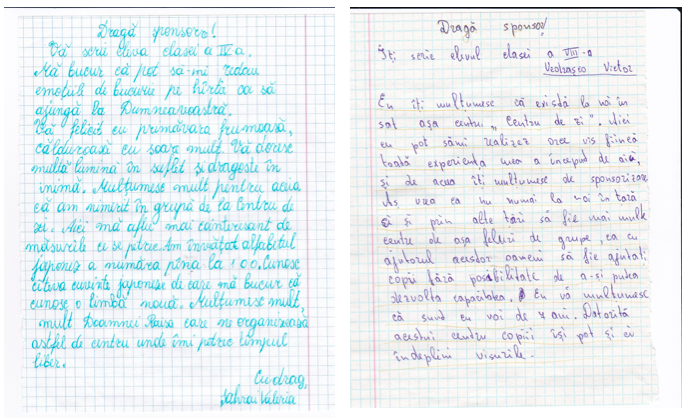 Dragă sponsor!
Vă scriu eleva clasei a IV a.
Mă bucur că pot să-mi redau
emoțiile de bucurie pe hîrtie ca să
ajungă la Dumneavoastră.
Vă felicit cu primăvara frumoasă,
călduroasă cu soare mult. Vă doresc
multă lumină în suflet și dragoste în
inimă. Mulțumesc mult pentru aceia
că am nimerit în grupă de la Centru de
zi. Aici mă aflu mai
măsurile ce se petrec. Am învățat alfabetul
japonez a număra pînă la 100. Cunosc
cîteva cuvinte japoneze de care mă bucur că
cunosc o limbă nouă. Mulțumesc mult,
mult Doamnei Raisa care ne organizează
astfel de centru unde îmi petrec timpul
liber.
Cu drag,
Valeria
Dragă sponsor!
Îți scrie elevul clasei a VIII-a
Victor
Eu îți mulțumesc că există la noi în
sat așa centru „Centru de zi". Aici
eu pot sămi realizez orce vis fiincă
toată experiența mea a început de aici,
și de aceia îți mulțumesc de sponsorizare.
Aș vrea ca nu numai la noi în țară
și prin alte țări să fie mai multe
centre de așa feluri de grupe, ca cu
ajutorul acestor oameni să fie ajutați
copii fără posibilitate de a-și putea
dezvolta capacitatea. Eu vă mulțumesc
că sunt cu voi de ani. Datorită
acestui centru copiii își pot și ei
îndeplini visurile.